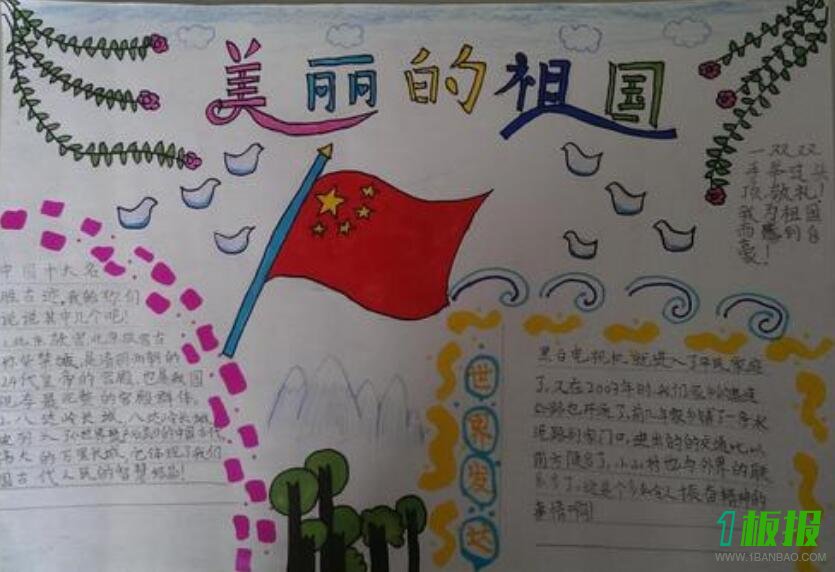 美丽的祖国
一双双
手举过头
顶,敬礼!
我为祖国
而感到自
豪!
中国十大名
胜古迹,我给你们
说说其中几个吧!
1.北京故宫 北京故宫古
称紫禁城,是清朝的
24代皇帝的宫殿,也是我国
现存最完整的宫殿群体。
2.八达岭长城,八达岭长城
的中国古代
伟大的万里长城,它体现了我们
国古代人民的智慧
世界发达
黑白电视机就进入了平民家庭
了,又在2009年时,我们家乡的
公路也开通了,前几年家乡铺了一条水
泥路到家门口,进出的的交通比以
前方便多了,小山村也与外界的联
系多了,这是个多么令人振奋精神的
事情啊!
1板报
WWW.1BANBAO.COM